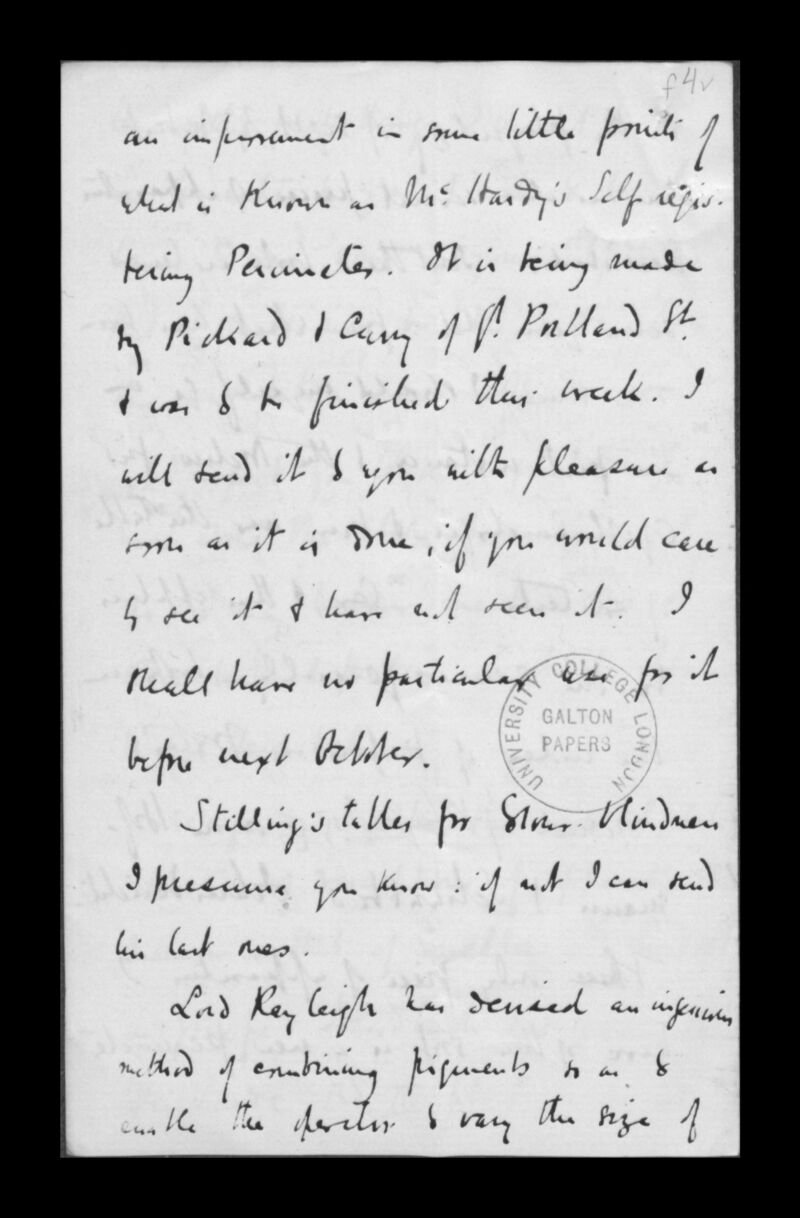 f4v
an improvement in some little points of
what is known as Mc Hardy's Self regis-
tering Perimeter. It is being made
by Pickard & Curry of Gt. Portland St.
& was to be finished this week. I
will send it to you with pleasure as
soon as it is done, if you would care
to see it & have not seen it. I
shall have no particular use for it
before next October.
UNIVERSITY COLLEGE LONDON
GALTON
PAPERS
Stilling's tables for Colour-blindness
I presume you know: if not I can send
his last ones.
Lord Rayleigh has devised an ingenious
method of combining pigments so as to
enable the operator to vary the size of